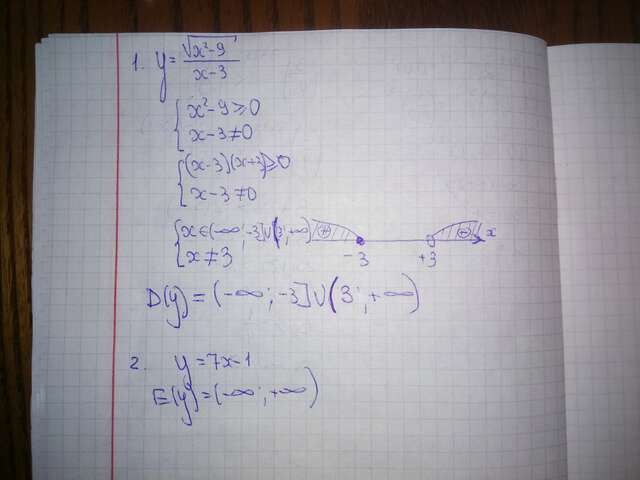 1. y = √(x²-9) / (x-3)
{ x²-9 ≥ 0
x-3 ≠ 0
{ (x-3)(x+3) ≥ 0
x-3 ≠ 0
{ x ∈ (-∞; -3] ∪ (3; +∞) + + x
x ≠ 3 -3 +3
D(y) = (-∞; -3] ∪ (3; +∞)
2. y = 7x-1
E(y) = (-∞; +∞)